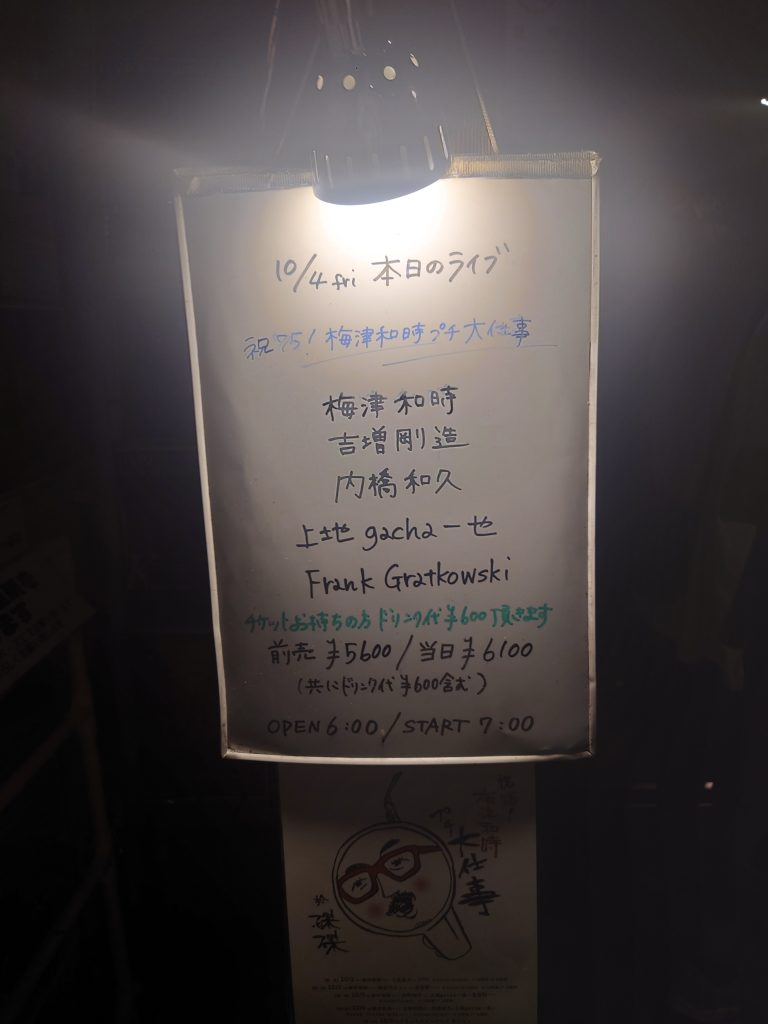 10/4 fri 本日のライブ
祝75! 梅津和時プチ大仕事
梅津和時
吉増剛造
内橋和久
上地 gacha 一也
Frank Gratkowski
チケットお持ちの方 ドリンク代¥600頂きます
前売 ¥5600 / 当日 ¥6100
(共にドリンク代¥600含む)
OPEN 6:00 / START 7:00
梅津和時
プチ
大仕事
於
磔磔